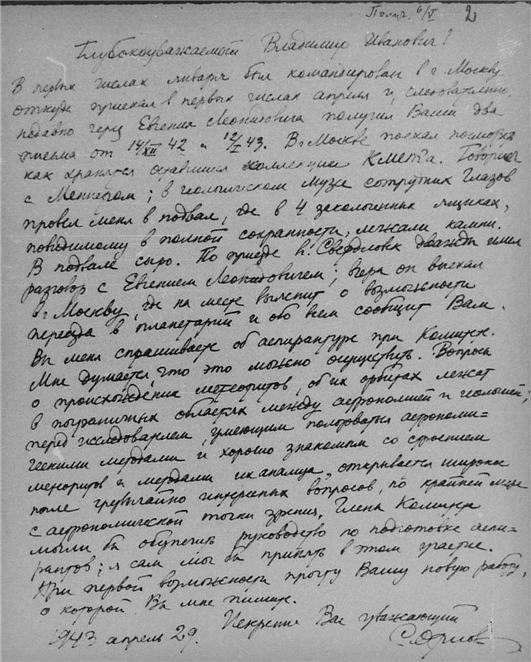 Получ. 6/V 2
Глубокоуважаемый Владимир Иванович!
В первых числах января был командирован в г. Москву
откуда приехал в первых числах апреля и, следовательно,
недавно через Евгения Леонидовича получил Ваши два
письма от 14/XII 42 и 12/I 43. В г. Москве поехал посмотреть
как хранятся коллекции Кмет'а. Говорил
с ; в геологическом музее сотрудник Глазов
провел меня в подвал, где в 4 заколоченных ящиках,
повидимому в полной сохранности, лежали камни.
В подвале сыро. По приезде в г. Свердловск дважды имел
разговор с Евгением Леонидовичем; вчера он выехал
в г. Москву, где на месте выяснит о возможности
переезда в планетарий и обо всем сообщит Вам.
Вы меня спрашиваете об аспирантуре при Комиссии.
Мне думается, что это можно осуществить. Вопросы
о происхождении метеоритов, об их орбитах лежат
в пограничных областях между астрономией и геологией;
перед исследователем, умеющим пользоваться астрономи-
ческими методами и хорошо знакомым со строением
метеоритов и методами их анализа, открывается широкое
поле чрезвычайно интересных вопросов, по крайней мере
с астрономической точки зрения. Члены Комиссии
могли бы обеспечить руководство по подготовке аспи-
рантов; я сам мог бы принять в этом участие.
При первой возможности прочту Вашу новую работу,
о которой Вы мне пишите.
Искренне Вас уважающий
1943 апрель 29. С. Орлов